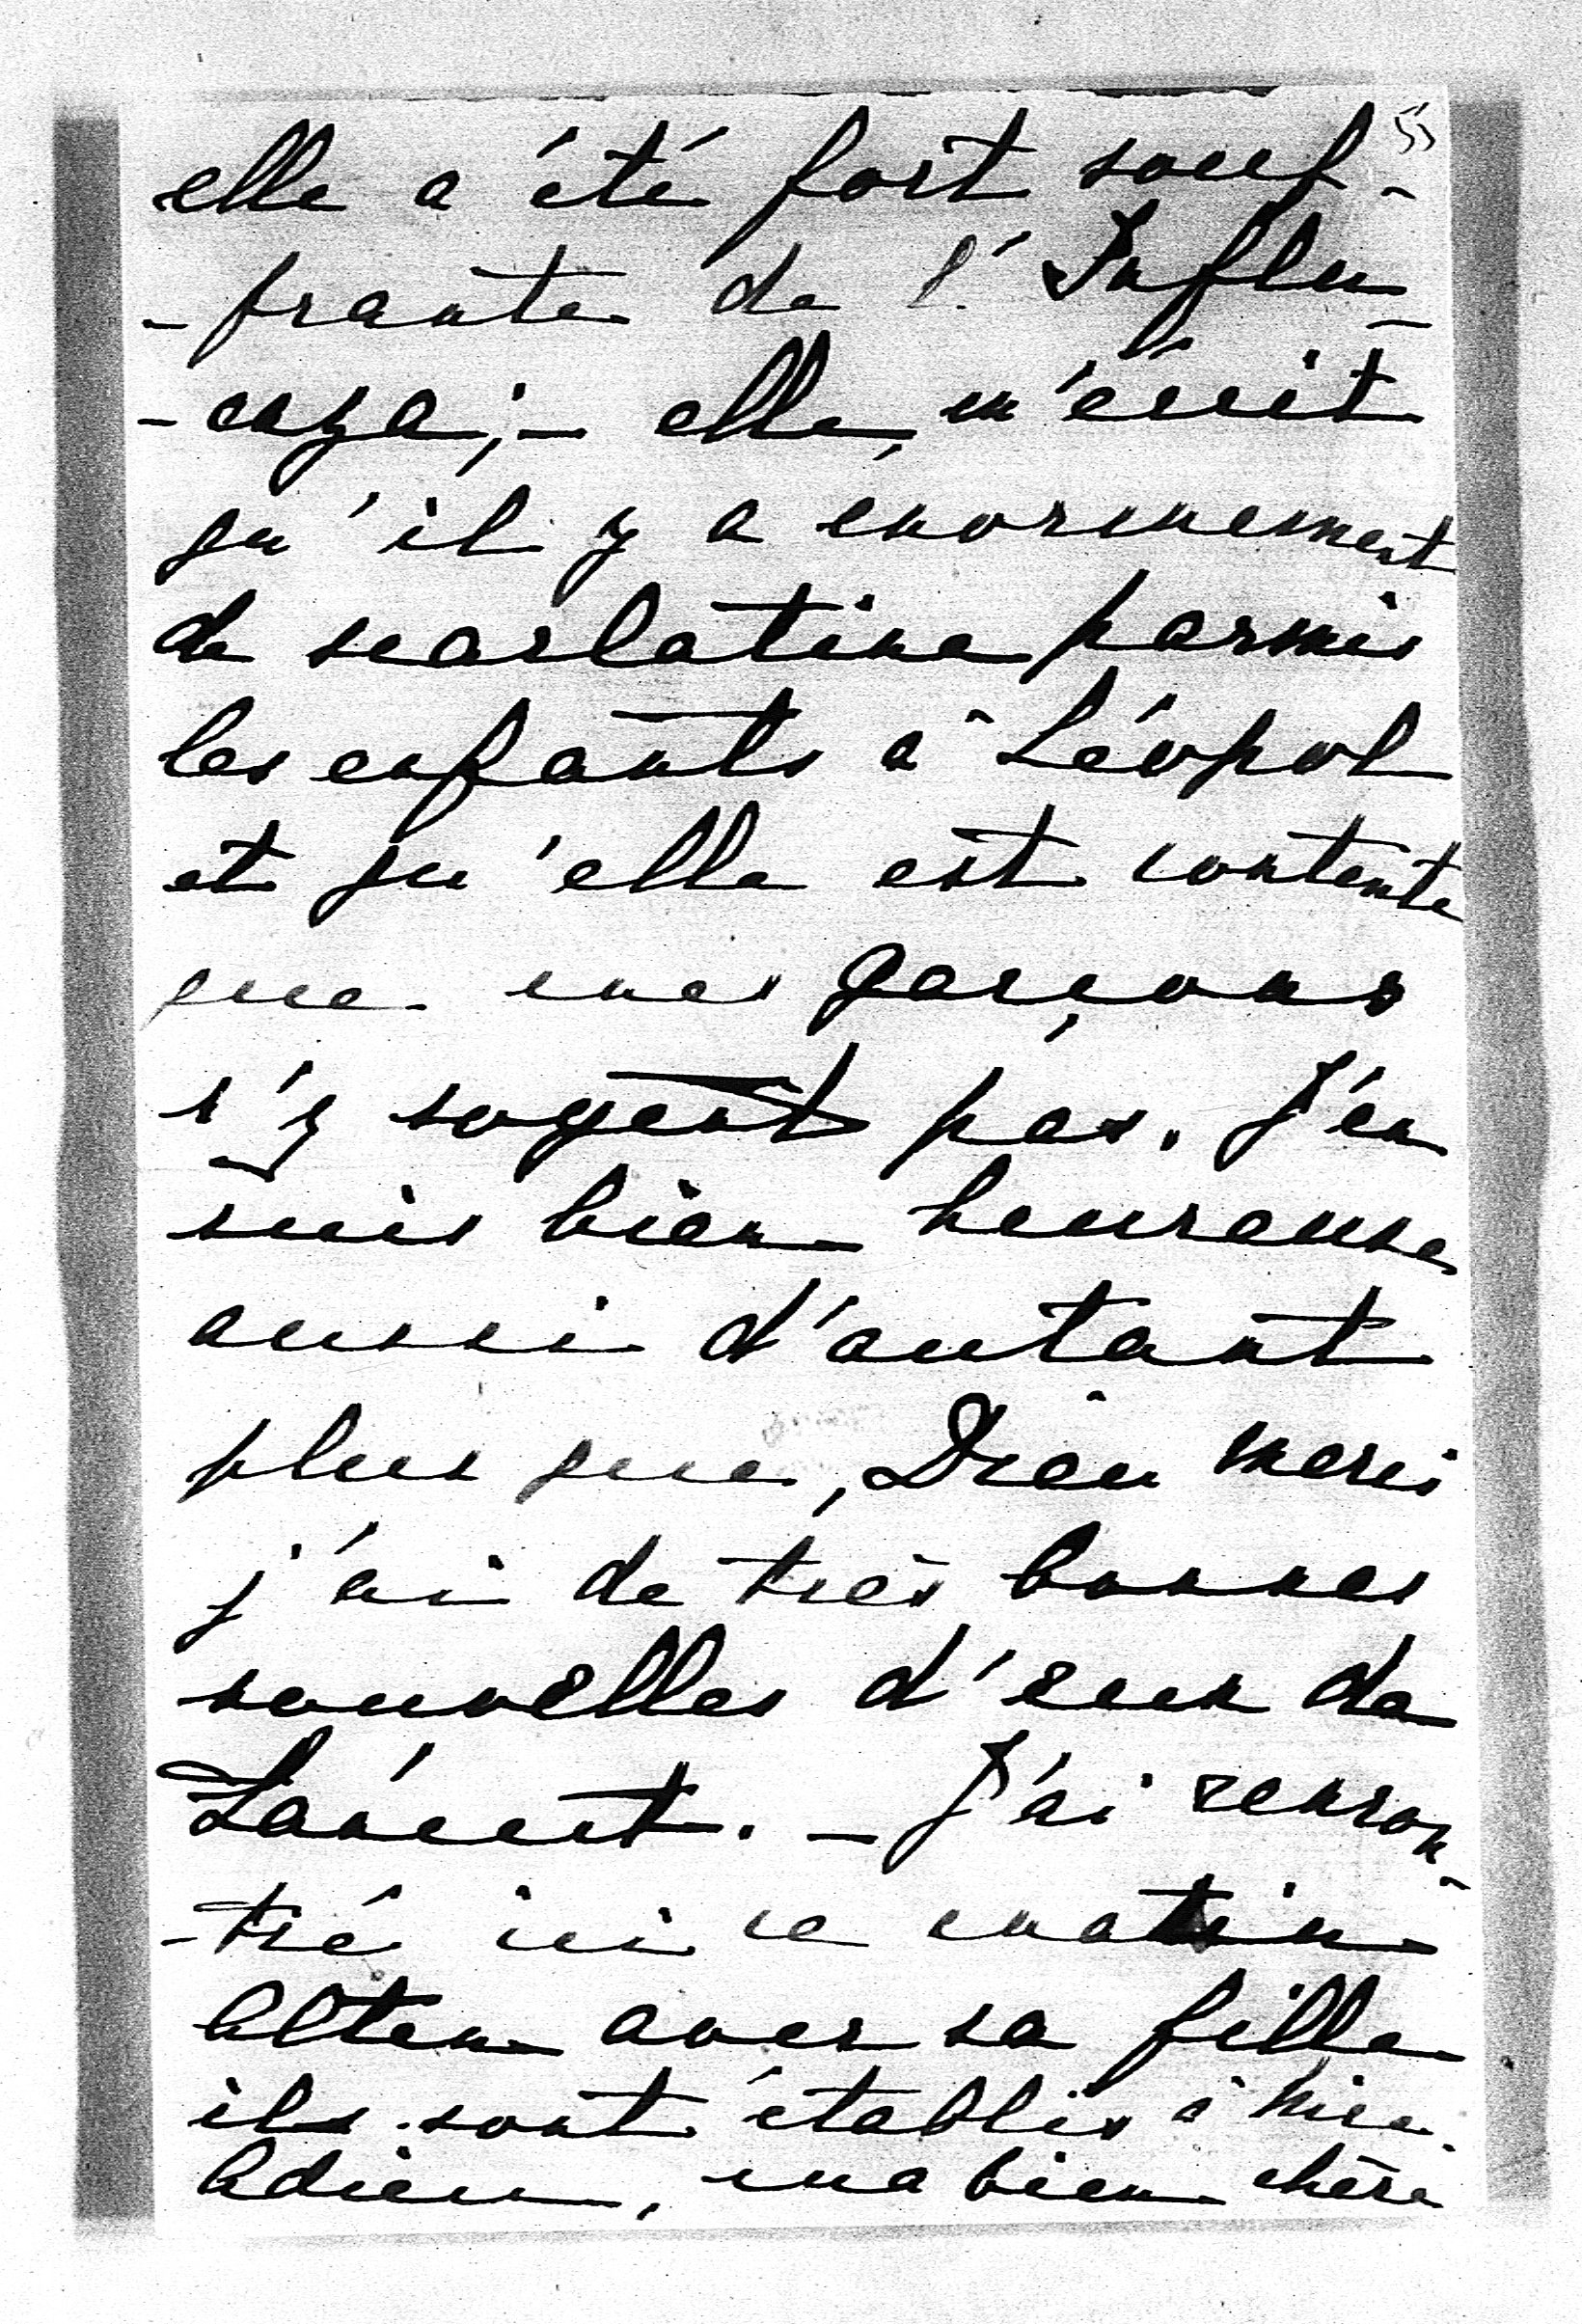 55
elle a été fort souf-
-frante de l'Influ-
-enza; - elle m'écrit
qu'il y a enormement
de scarlatine parmis
les enfants à Léopol
et qu'elle est contente
que mes garçons
n'y soyent pas. J'en
suis bien heureuse
aussi d'autant
plus que, Dieu merci
j'ai de très bonnes
nouvelles d'eux de
Lancut. - J'ai rencon-
-tré ici ce matin
Alten avec sa fille
ils sont établis à Nice.
Adieu, ma bien chère